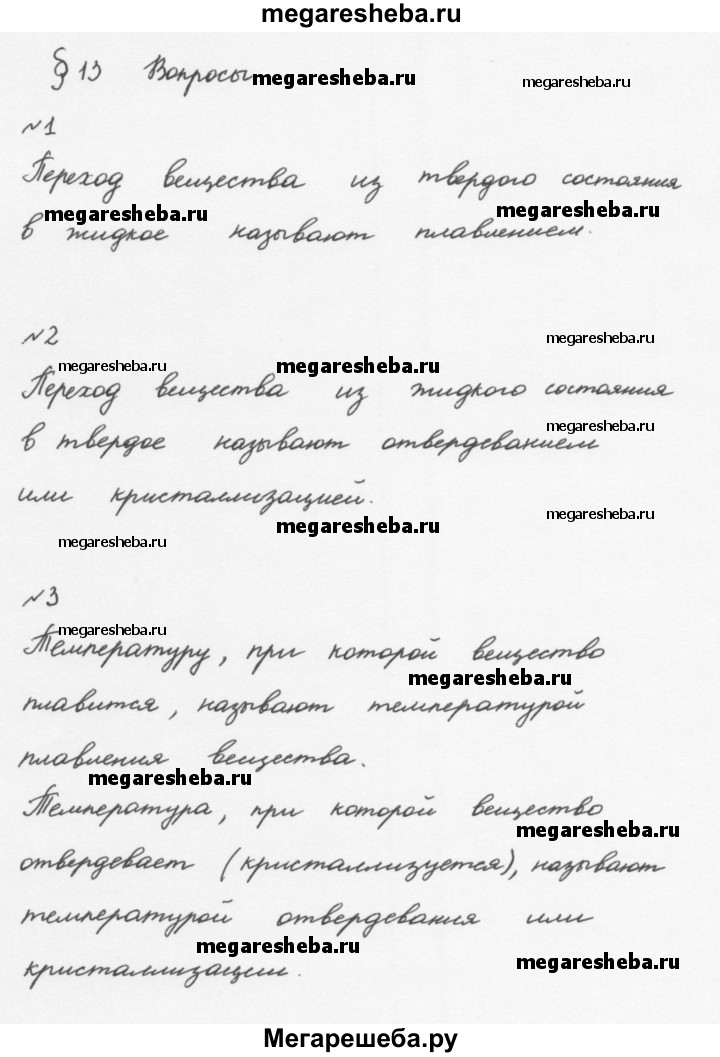 megaresheba.ru
§ 13 Вопросы megaresheba.ru megaresheba.ru
№1
Переход вещества из твердого состояния
megaresheba.ru megaresheba.ru
в жидкое называют плавлением.
№2 megaresheba.ru
megaresheba.ru megaresheba.ru
Переход вещества из жидкого состояния
megaresheba.ru
в твердое называют отвердеванием
или кристаллизацией.
megaresheba.ru megaresheba.ru
megaresheba.ru
№3
megaresheba.ru
Температуру, при которой вещество
megaresheba.ru
плавится, называют температурой
плавления вещества.
megaresheba.ru
Температура, при которой вещество
megaresheba.ru
отвердевает (кристаллизуется), называют
температурой отвердевания или
megaresheba.ru megaresheba.ru
кристаллизации.
Мегарешеба.ру